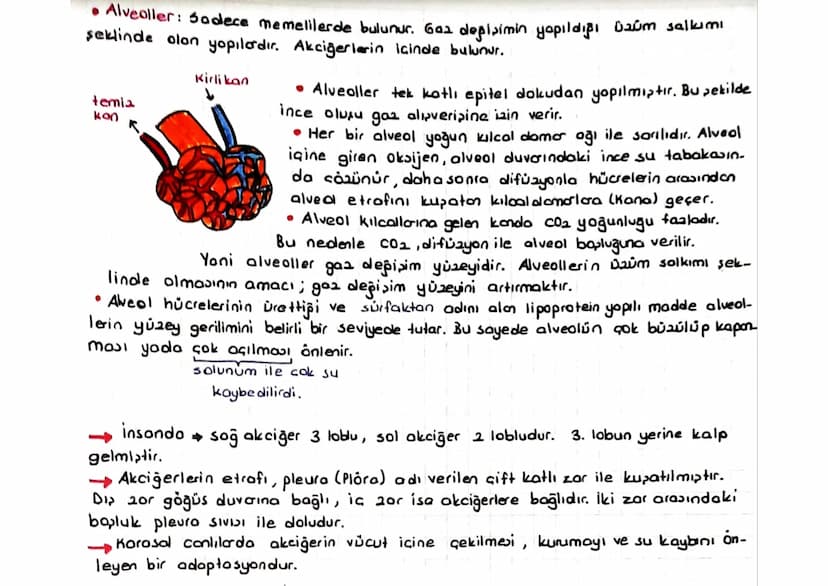 • Alveoller: Sadece memelilerde bulunur. Gaz değişimin yapıldığı üzüm salkımı
şeklinde olan yapılardır. Akciğerlerin içinde bulunur.
Kirli kan
temiz
kan
• Alveoller tek katlı epitel dokudan yapılmıştır. Bu şekilde
ince oluşu gaz alışverişine izin verir.
• Her bir alveol yoğun kılcal damar ağı ile sarılıdır. Alveol
içine giren oksijen, alveol duvarındaki ince su tabakasın-
da çözünür, daha sonra difüzyonla hücrelerin arasından
alveol etrafını kuşatan kılcal damarlara (kana) geçer.
• Alveol kılcallarına gelen kanda CO2 yoğunluğu fazladır.
Bu nedenle CO2, difüzyon ile alveol boşluğuna verilir.
Yani alveoller gaz değişim yüzeyidir. Alveollerin üzüm salkımı şek-
linde olmasının amacı; gaz değişim yüzeyini artırmaktır.
• Alveol hücrelerinin ürettiği ve sürfaktan adını alan lipoprotein yapılı madde alveol-
lerin yüzey gerilimini belirli bir seviyede tutar. Bu sayede alveolün çok büzülüp kapan-
ması yada çok açılması önlenir.
solunum ile çok su
kaybedilirdi.
→ İnsanda → sağ akciğer 3 loblu, sol akciğer 2 lobludur. 3. lobun yerine kalp
gelmiştir.
→ Akciğerlerin etrafı, pleura (Plöra) adı verilen çift katlı zar ile kuşatılmıştır.
Dış zar göğüs duvarına bağlı, iç zar ise akciğerlere bağlıdır. İki zar arasındaki
boşluk pleura sıvısı ile doludur.
→ Karasal canlılarda akciğerin vücut içine çekilmesi, kurumayı ve su kaybını ön-
leyen bir adaptasyondur.